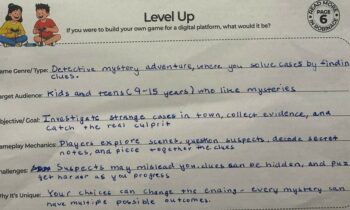 Level Up
READ MORE
PAGE
6
If you were to build your own game for a digital platform, what would it be?
ame Genre/ Type: Detective mystery adventure, where you solve cases by findin
clues.
arget Audience: Kids and teens (9-15 years) who like mysteries
Objective/Goal: Investigate strange cases in town, collect evidence, and
catch the real culprit
ameplay Mechanics: Players explore scenes, question suspects, decode secret
notes, and piece together the clues
hallenges: Suspects may mislead you, clues can be hidden, and puz
get harder as you progress
Why It's Unique: Your choices can change the ending - every mystery can
have multiple possible outcomes.